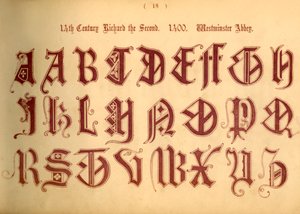 ( 18 )
14th Century Richard the Second. 1400. Westminster Abbey.
A A B B T D E F G H
I K L M N O P Q
R S T V W X Y Z